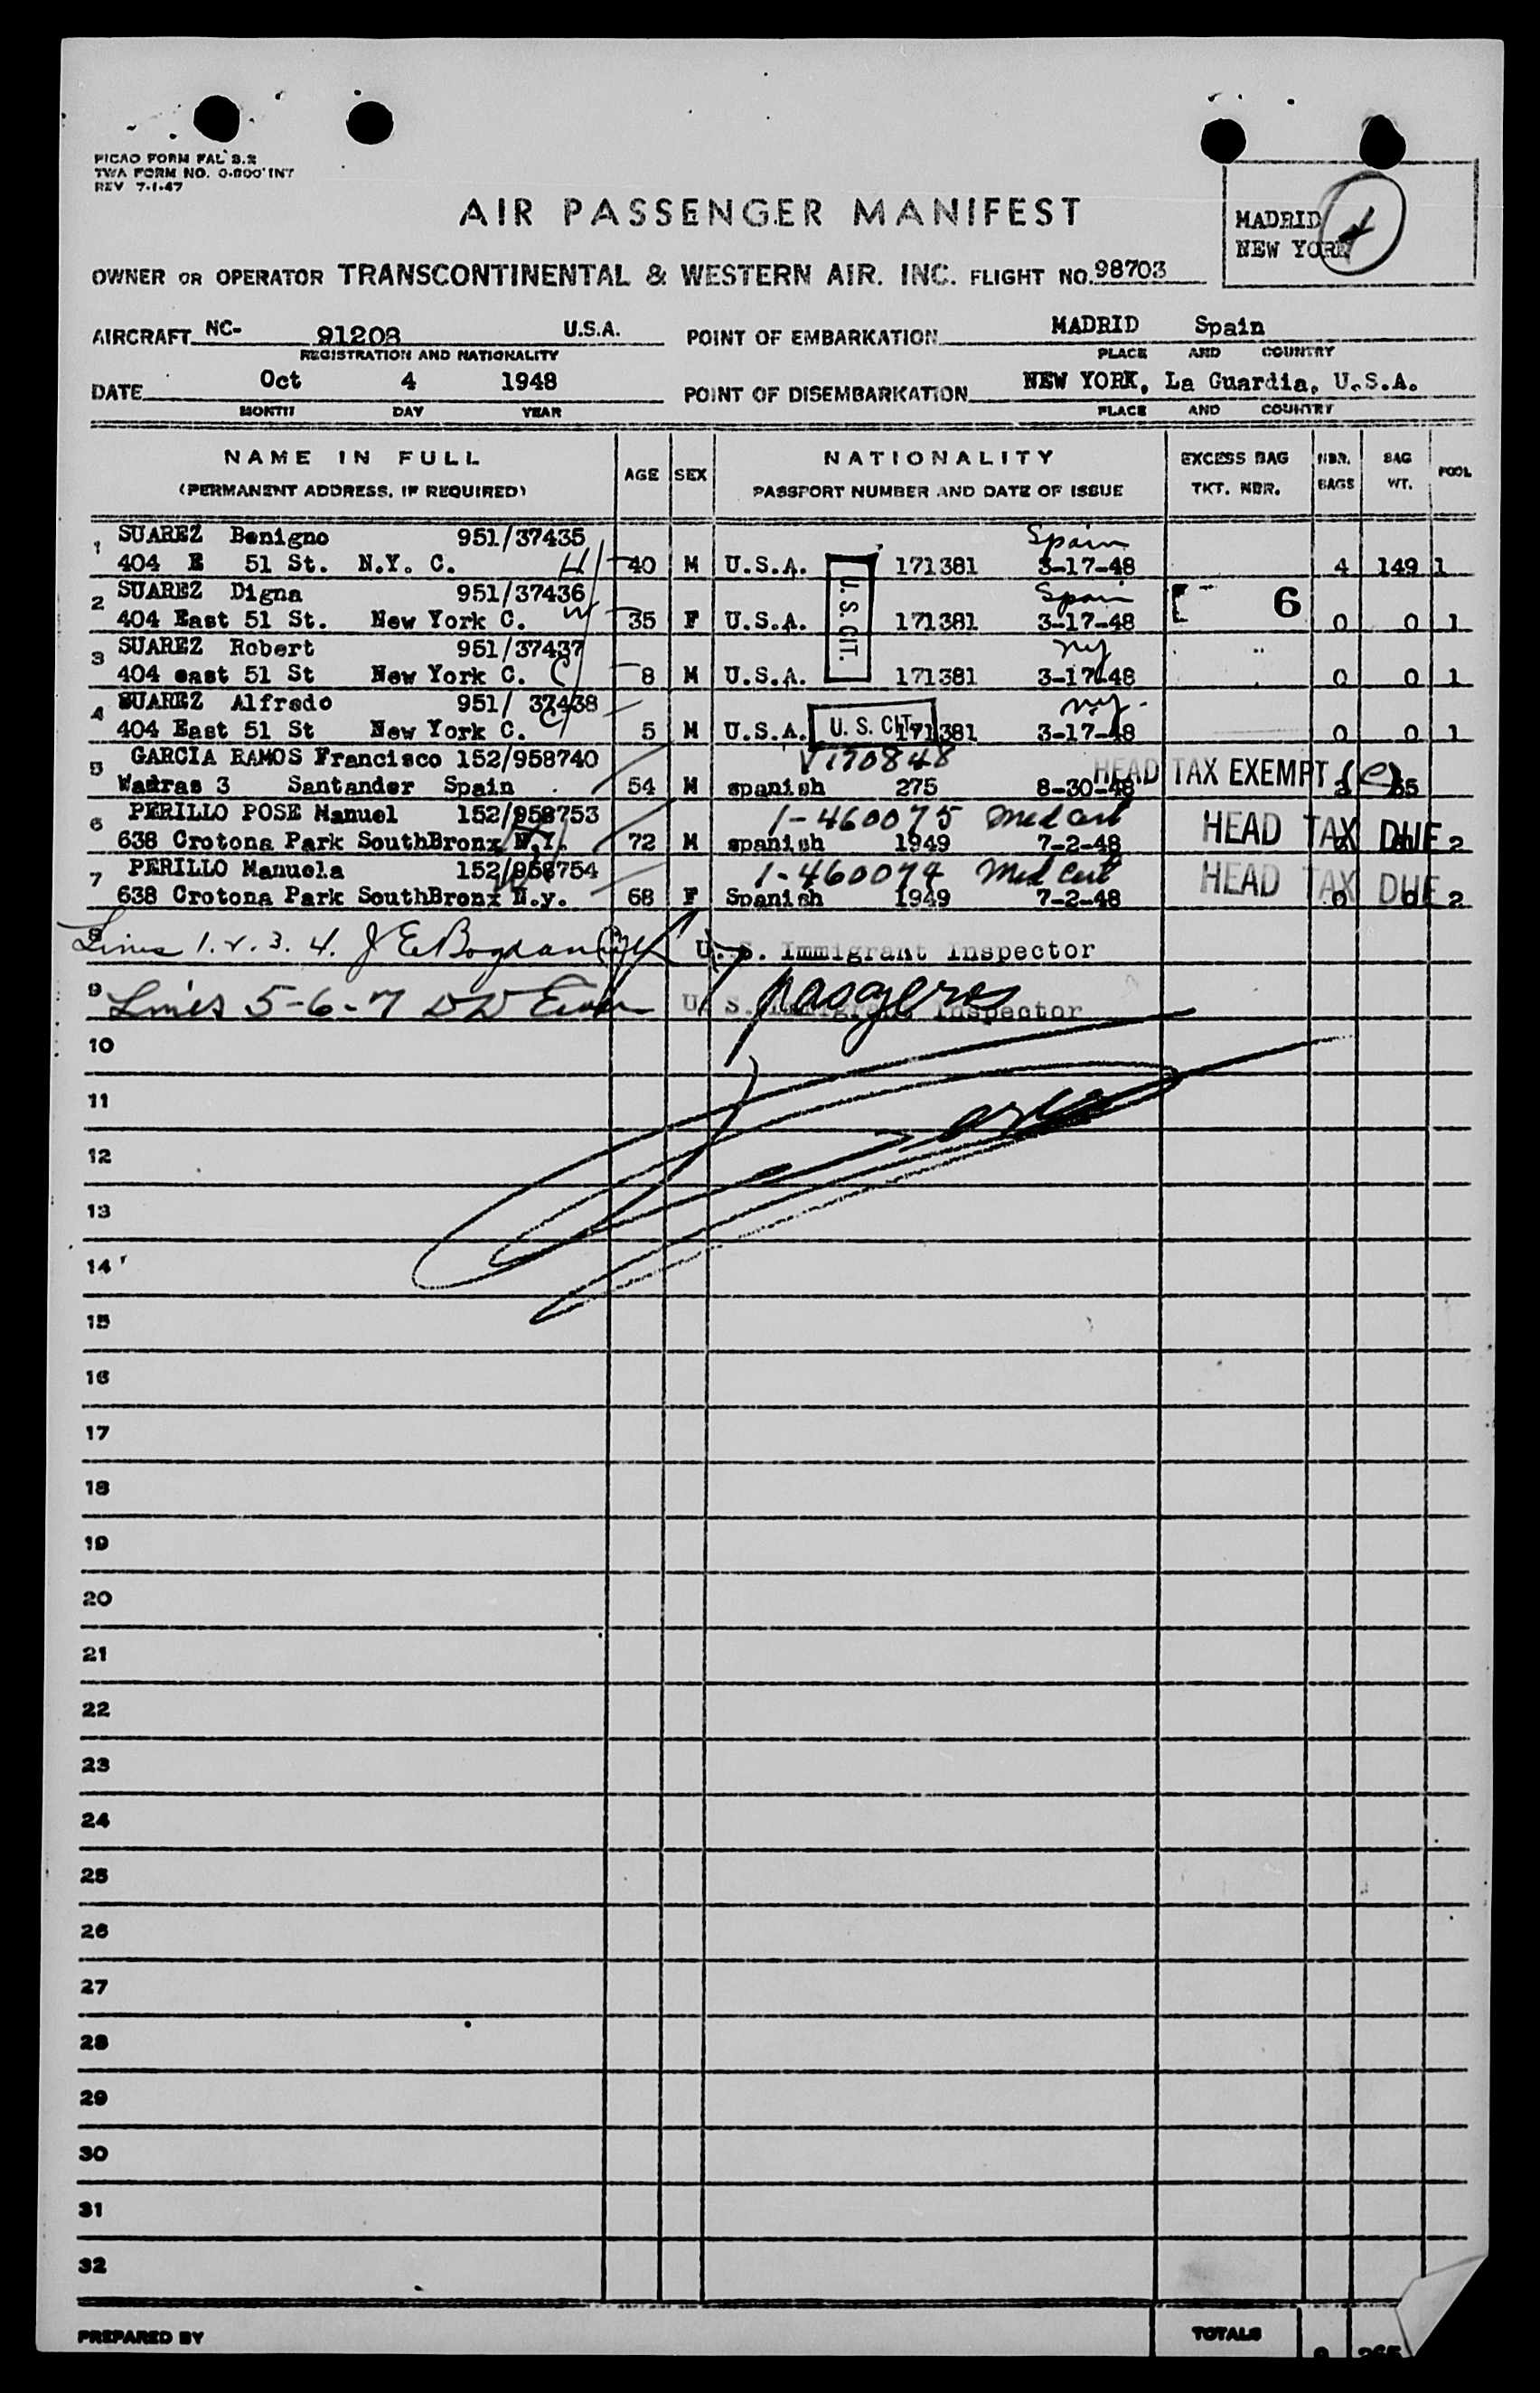 PICAO FORM FAL 3.2
TWA FORM NO. O-800 INT
REV 7-1-47
AIR PASSENGER MANIFEST
MADRID
NEW YORK
OWNER OR OPERATOR TRANSCONTINENTAL & WESTERN AIR. INC. FLIGHT NO. 98703
AIRCRAFT NC- 91208 U.S.A. POINT OF EMBARKATION MADRID Spain
REGISTRATION AND NATIONALITY PLACE AND COUNTRY
DATE Oct 4 1948 POINT OF DISEMBARKATION NEW YORK, La Guardia, U.S.A.
MONTH DAY YEAR PLACE AND COUNTRY
NAME IN FULL AGE SEX NATIONALITY EXCESS BAG NBR. BAG POOL
(PERMANENT ADDRESS, IF REQUIRED) PASSPORT NUMBER AND DATE OF ISSUE TKT. NBR. BAGS WT.
1 SUAREZ Benigno 951/37435 Spain
404 E 51 St. N.Y. C. H 40 M U.S.A. 171381 3-17-48 4 149 1
2 SUAREZ Digna 951/37436 U.S. CIT. Spain 6
404 East 51 St. New York C. W 35 F U.S.A. 171381 3-17-48 0 0 1
3 SUAREZ Robert 951/37437 ny
404 east 51 St New York C. C 8 M U.S.A. 171381 3-17-48 0 0 1
4 SUAREZ Alfredo 951/ 37438 ny.
404 East 51 St New York C. C 5 M U.S.A. U. S. CIT. 171381 3-17-48 0 0 1
5 GARCIA RAMOS Francisco 152/958740 V170848 HEAD TAX EXEMPT (e)
Wadras 3 Santander Spain 54 M spanish 275 8-30-48
6 PERILLO POSE Manuel 152/958753 1-460075 Med cert HEAD TAX DUE
638 Crotona Park SouthBronx N.Y. 72 M spanish 1949 7-2-48 2
7 PERILLO Manuela 152/958754 1-460074 Med cert HEAD TAX DUE
638 Crotona Park SouthBronx N.y. 68 F Spanish 1949 7-2-48 0 0 2
8 Lines 1. 2. 3. 4. J E Bogdan U. S. Immigrant Inspector
9 Lines 5-6-7 U. S. Immigrant Inspector
7 pasajeros
10
11
12
13
14
15
16
17
18
19
20
21
22
23
24
25
26
27
28
29
30
31
32
PREPARED BY TOTALS